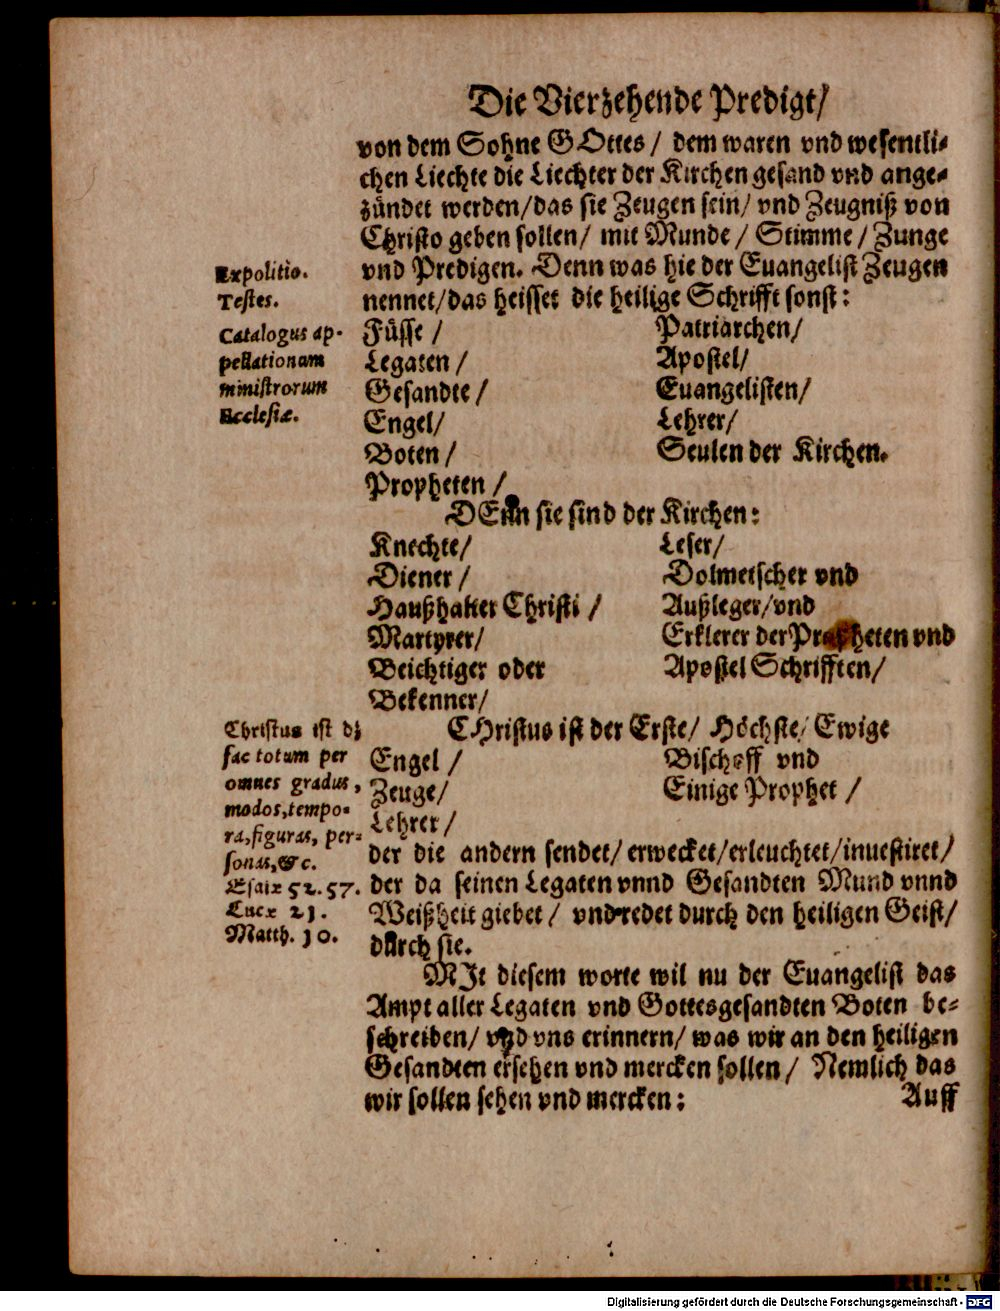 Die Vierzehende Predigt/
von dem Sohne GOttes / dem waren vnd wesentli-
chen Liechte die Liechter der Kirchen gesand vnd ange-
zündet werden/das sie Zeugen sein/ vnd Zeugniß von
Christo geben sollen/ mit Munde / Stimme / Zunge
vnd Predigen. Denn was hie der Euangelist Zeugen
nennet/das heisset die heilige Schrifft sonst:
Expolitio.
Testes.
Catalogus ap-
pellationum
ministrorum
Ecclesiæ.
Füsse /
Legaten /
Gesandte /
Engel/
Boten /
Propheten /
Patriarchen/
Apostel/
Euangelisten/
Lehrer/
Seulen der Kirchen.
DEnn sie sind der Kirchen:
Knechte/
Diener /
Haußhalter Christi /
Martyrer/
Beichtiger oder
Bekenner/
Leser/
Dolmetscher vnd
Außleger/vnd
Erklerer der Propheten vnd
Apostel Schrifften/
CHristus ist der Erste/ Höchste/ Ewige
Engel /
Zeuge/
Lehrer/
Bischoff vnd
Einige Prophet /
Christus ist dz
fac totum per
omnes gradus,
modos,tempo-
ra,figuras, per-
sonas,&c.
Esaiæ 52. 57.
Lucæ 21.
Matth. 10.
der die andern sendet/ erwecket/erleuchtet/inuestiret/
der da seinen Legaten vnnd Gesandten Mund vnnd
Weißheit giebet / vnd redet durch den heiligen Geist/
durch sie.
MJt diesem worte wil nu der Euangelist das
Ampt aller Legaten vnd Gottesgesandten Boten be-
schreiben/ vnd vns erinnern/ was wir an den heiligen
Gesandten ersehen vnd mercken sollen / Nemlich das
wir sollen sehen vnd mercken:
Auff
Digitalisierung gefördert durch die Deutsche Forschungsgemeinschaft - DFG